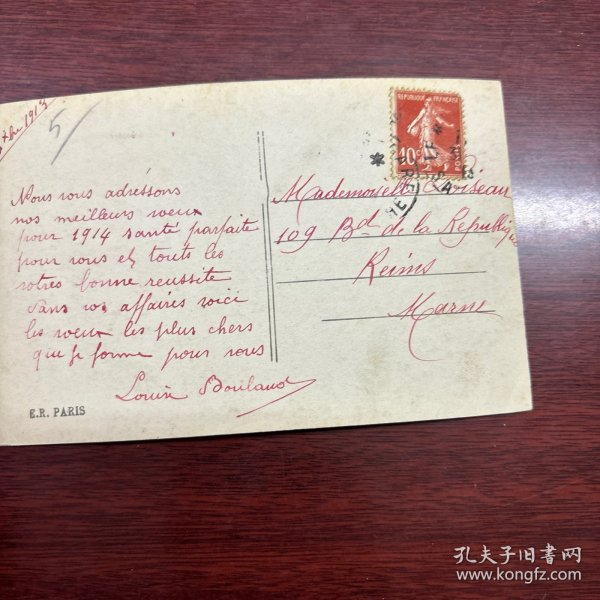 1913
5
Nous vous adréssons
nos meilleurs voeux
pour 1914 santé parfaite
pour vous et touts les
votres bonne reussite
dans vos affaires voici
les voeux les plus chers
que je forme pour vous
Louise Bouland
E.R. PARIS
REPUBLIQUE FRANÇAISE
10c
POSTES
Mademoiselle Loiseau
109 Bd de la République
Reims
Marne
孔夫子旧书网
www.kongfz.com